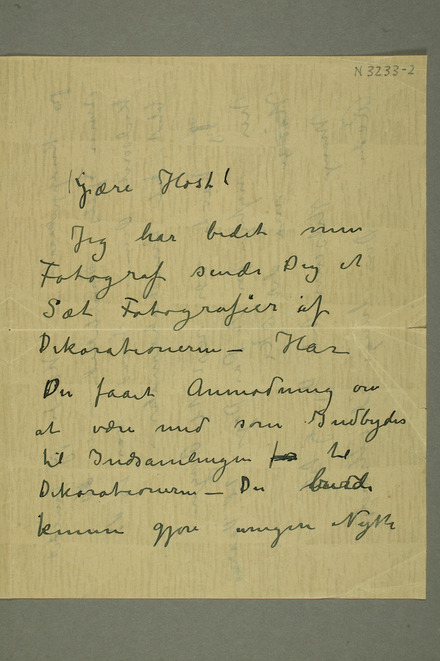 N 3233-2
Kjære Høst!
Jeg har bedet min
Fotograf sende Dig et
Sæt Fotografier af
Dekorationerne – Har
Du faaet Anmodning om
at være med som Indbyder
til Indsamlingen for til
Dekorationerne – Du burde
kunne gjøre megen Nytte